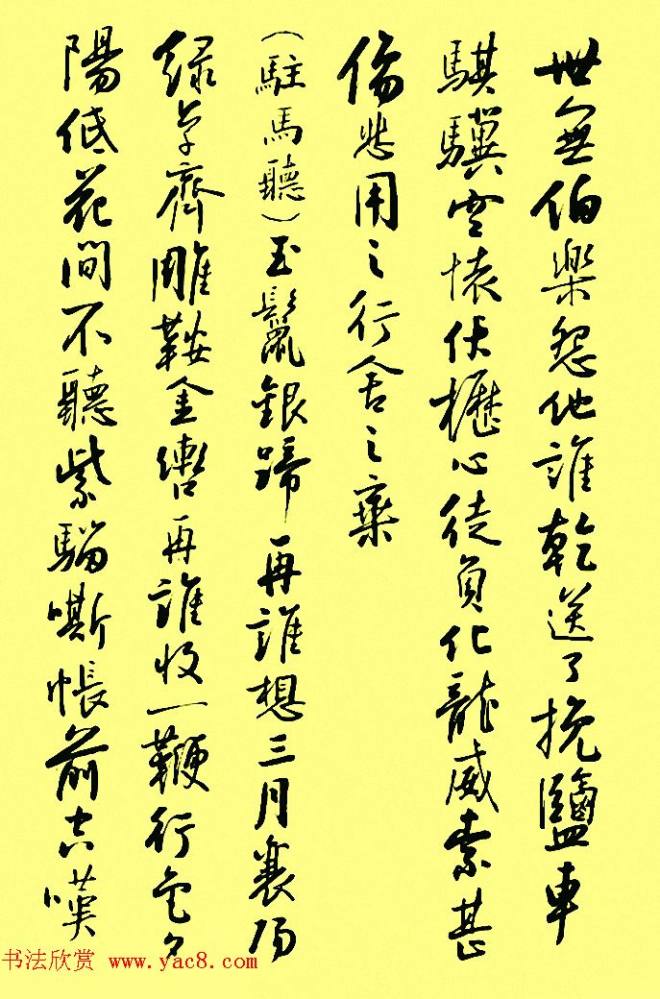 世無伯樂怨他誰乾送了挽鹽車
騏驥空懷伏櫪心徒負化龍威索甚
傷悲用之行舍之棄
（駐馬聽）玉鬣銀蹄再誰想三月襄陽
綠草齊雕鞍金轡再誰收一鞭行色夕
陽低花間不聽紫騮嘶帳前空嘆
书法欣赏 www.yac8.com